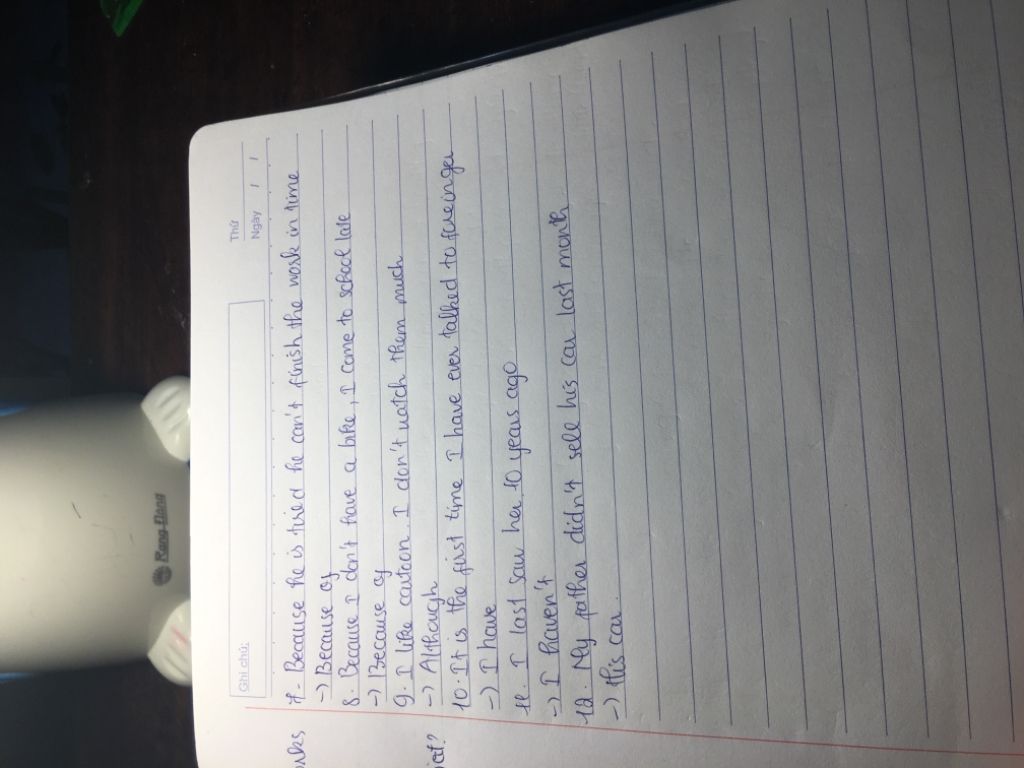 Rạng Đông
Ghi chú:
Thứ
Ngày / /
7. Because he is tried he can't finish the work in time
-> Because of
8. Because I don't have a bike, I come to school late
-> Because of
9. I like cartoon. I don't watch them much
-> Although
10. It is the first time I have ever talked to foreinger
-> I have
11. I last saw her 10 years ago
-> I haven't
12. My father didn't sell his car last month
-> His car.